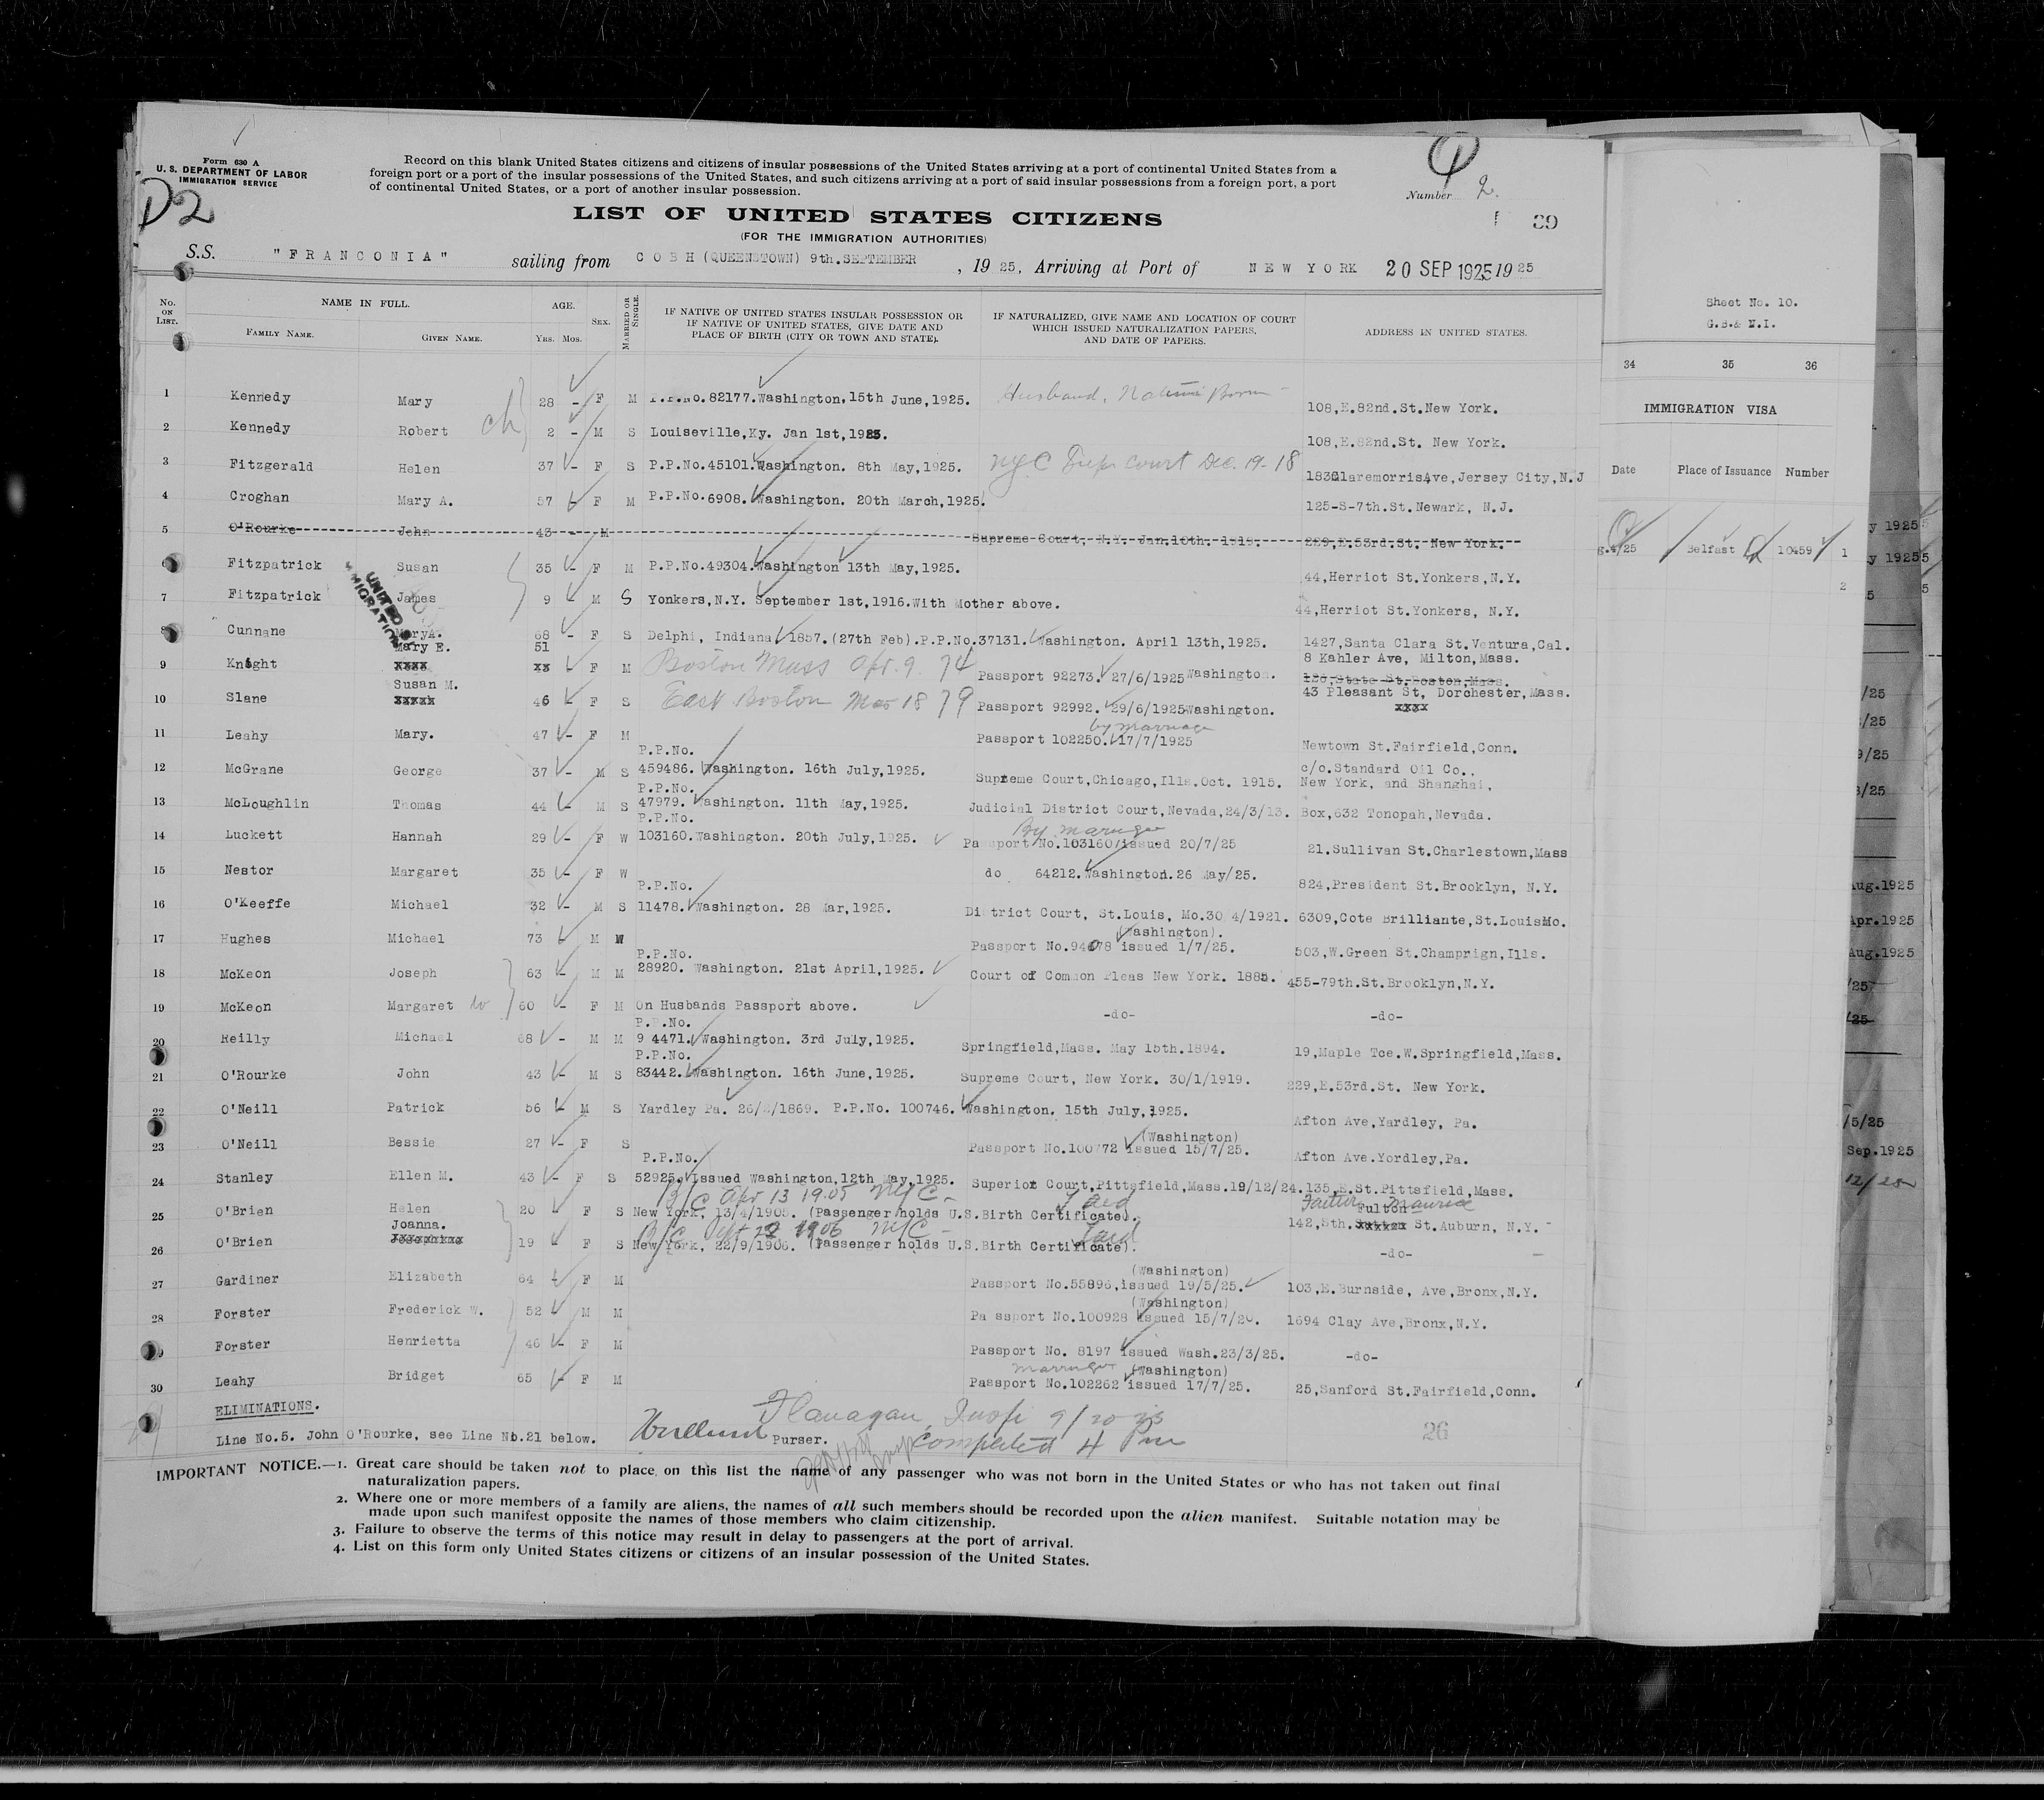 Form 630 A
U. S. DEPARTMENT OF LABOR
IMMIGRATION SERVICE
D2
Record on this blank United States citizens and citizens of insular possessions of the United States arriving at a port of continental United States from a
foreign port or a port of the insular possessions of the United States, and such citizens arriving at a port of said insular possessions from a foreign port, a port
of continental United States, or a port of another insular possession.
Number 2.
LIST OF UNITED STATES CITIZENS
39
(FOR THE IMMIGRATION AUTHORITIES)
S.S. "FRANCONIA" sailing from COBH (QUEENSTOWN) 9th.SEPTEMBER, 19 25, Arriving at Port of NEW YORK 20 SEP 1925 19 25
No. ON LIST. NAME IN FULL. FAMILY NAME. GIVEN NAME. AGE. YRS. MOS. SEX. MARRIED OR SINGLE. IF NATIVE OF UNITED STATES INSULAR POSSESSION OR IF NATIVE OF UNITED STATES, GIVE DATE AND PLACE OF BIRTH (CITY OR TOWN AND STATE). IF NATURALIZED, GIVE NAME AND LOCATION OF COURT WHICH ISSUED NATURALIZATION PAPERS, AND DATE OF PAPERS. ADDRESS IN UNITED STATES.
1 Kennedy Mary 28 - F M P.P.No.82177.Washington,15th June,1925. Husband, Native Born 108,E.82nd.St.New York.
2 Kennedy Robert ch 2 - M S Louiseville,Ky. Jan 1st,1923. 108,E.82nd.St. New York.
3 Fitzgerald Helen 37 - F S P.P.No.45101.Washington. 8th May,1925. NYC Supr Court Dec. 19-18 183 Claremorris Ave,Jersey City,N.J
4 Croghan Mary A. 57 - F M P.P.No.6908. Washington. 20th March,1925. 125-S-7th.St.Newark, N.J.
5 O'Rourke John 43 - M Supreme Court, N.Y. Jan.10th. 1919. 229,E.53rd.St. New York.
Fitzpatrick Susan 35 - F M P.P.No.49304.Washington 13th May,1925. 44,Herriot St.Yonkers,N.Y.
7 Fitzpatrick James 9 - M S Yonkers,N.Y. September 1st,1916.With Mother above. 44,Herriot St.Yonkers, N.Y.
8 Cunnane Mary A. 68 - F S Delphi, Indiana 1857.(27th Feb).P.P.No.37131. Washington. April 13th,1925. 1427,Santa Clara St.Ventura,Cal.
Mary E. 51 8 Kahler Ave, Milton,Mass.
9 Knight xxxx xx - F M Boston Mass Apr. 9. 74 Passport 92273. 27/6/1925 Washington. 126,State St.Boston,Mass.
Susan M. 43 Pleasant St, Dorchester,Mass.
10 Slane xxxxx 46 - F S East Boston Mar 18 79 Passport 92992. 29/6/1925 Washington. xxxx
by marriage
11 Leahy Mary. 47 - F M Passport 102250. 17/7/1925 Newtown St.Fairfield,Conn.
P.P.No.
12 McGrane George 37 - M S 459486. Washington. 16th July,1925. Supreme Court,Chicago,Ills.Oct. 1915. c/o.Standard Oil Co., New York, and Shanghai,
P.P.No.
13 McLoughlin Thomas 44 - M S 47979. Washington. 11th May,1925. Judicial District Court,Nevada,24/3/13. Box,632 Tonopah,Nevada.
P.P.No. By marriage
14 Luckett Hannah 29 - F W 103160.Washington. 20th July,1925. Passport No.103160 issued 20/7/25 21.Sullivan St.Charlestown,Mass
15 Nestor Margaret 35 - F W do 64212.Washington.26 May/25. 824,President St.Brooklyn, N.Y.
P.P.No.
16 O'Keeffe Michael 32 - M S 11478. Washington. 28 Mar,1925. District Court, St.Louis, Mo.30 4/1921. 6309,Cote Brilliante,St.LouisMo.
(Washington).
17 Hughes Michael 73 - M W Passport No.94078 issued 1/7/25. 503,W.Green St.Champrign,Ills.
P.P.No.
18 McKeon Joseph 63 - M M 28920. Washington. 21st April,1925. Court of Common Pleas New York. 1885. 455-79th.St.Brooklyn,N.Y.
19 McKeon Margaret w 60 - F M On Husbands Passport above. -do- -do-
P.P.No.
20 Reilly Michael 68 - M M 9 4471. Washington. 3rd July,1925. Springfield,Mass. May 15th.1894. 19,Maple Tce.W.Springfield,Mass.
P.P.No.
21 O'Rourke John 43 - M S 83442. Washington. 16th June,1925. Supreme Court, New York. 30/1/1919. 229,E.53rd.St. New York.
22 O'Neill Patrick 56 - M S Yardley Pa. 26/2/1869. P.P.No. 100746. Washington. 15th July,1925. Afton Ave,Yardley, Pa.
(Washington)
23 O'Neill Bessie 27 - F S Passport No.100772 issued 15/7/25. Afton Ave.Yordley,Pa.
P.P.No.
24 Stanley Ellen M. 43 - F S 52925. Issued Washington,12th May,1925. Superior Court,Pittsfield,Mass.19/12/24. 135,E.St.Pittsfield,Mass.
B/C Apr 13 1905 NYC - Father Maurice
25 O'Brien Helen 20 - F S New York, 13/4/1905. (Passenger holds U.S.Birth Certificate). Fulton 142,5th xxxxxx St.Auburn, N.Y.
Joanna. B/C Sept 22 1906 NYC -
26 O'Brien xxxxxxxxx 19 - F S New York, 22/9/1906. (Passenger holds U.S.Birth Certificate). -do-
(Washington)
27 Gardiner Elizabeth 64 - F M Passport No.55896,issued 19/5/25. 103,E.Burnside, Ave,Bronx,N.Y.
(Washington)
28 Forster Frederick W. 52 - M M Pa ssport No.100928 issued 15/7/20. 1694 Clay Ave,Bronx,N.Y.
Forster Henrietta 46 - F M Passport No. 8197 issued Wash.23/3/25. -do-
marriage (Washington)
30 Leahy Bridget 65 - F M Passport No.102262 issued 17/7/25. 25,Sanford St.Fairfield,Conn.
ELIMINATIONS.
Flanagan, Insp. 9/20/25
Line No.5. John O'Rourke, see Line No.21 below. Purser. Completed 4 Pm 26
IMPORTANT NOTICE.—1. Great care should be taken not to place on this list the name of any passenger who was not born in the United States or who has not taken out final
naturalization papers.
2. Where one or more members of a family are aliens, the names of all such members should be recorded upon the alien manifest. Suitable notation may be
made upon such manifest opposite the names of those members who claim citizenship.
3. Failure to observe the terms of this notice may result in delay to passengers at the port of arrival.
4. List on this form only United States citizens or citizens of an insular possession of the United States.
Sheet No. 10.
G.B.& N.I.
34 35 36
IMMIGRATION VISA
Date Place of Issuance Number
g.4/25 Belfast 10459 1
2
y 1925
y 1925
Aug.1925
Apr.1925
Aug.1925
/5/25
Sep.1925
12/25